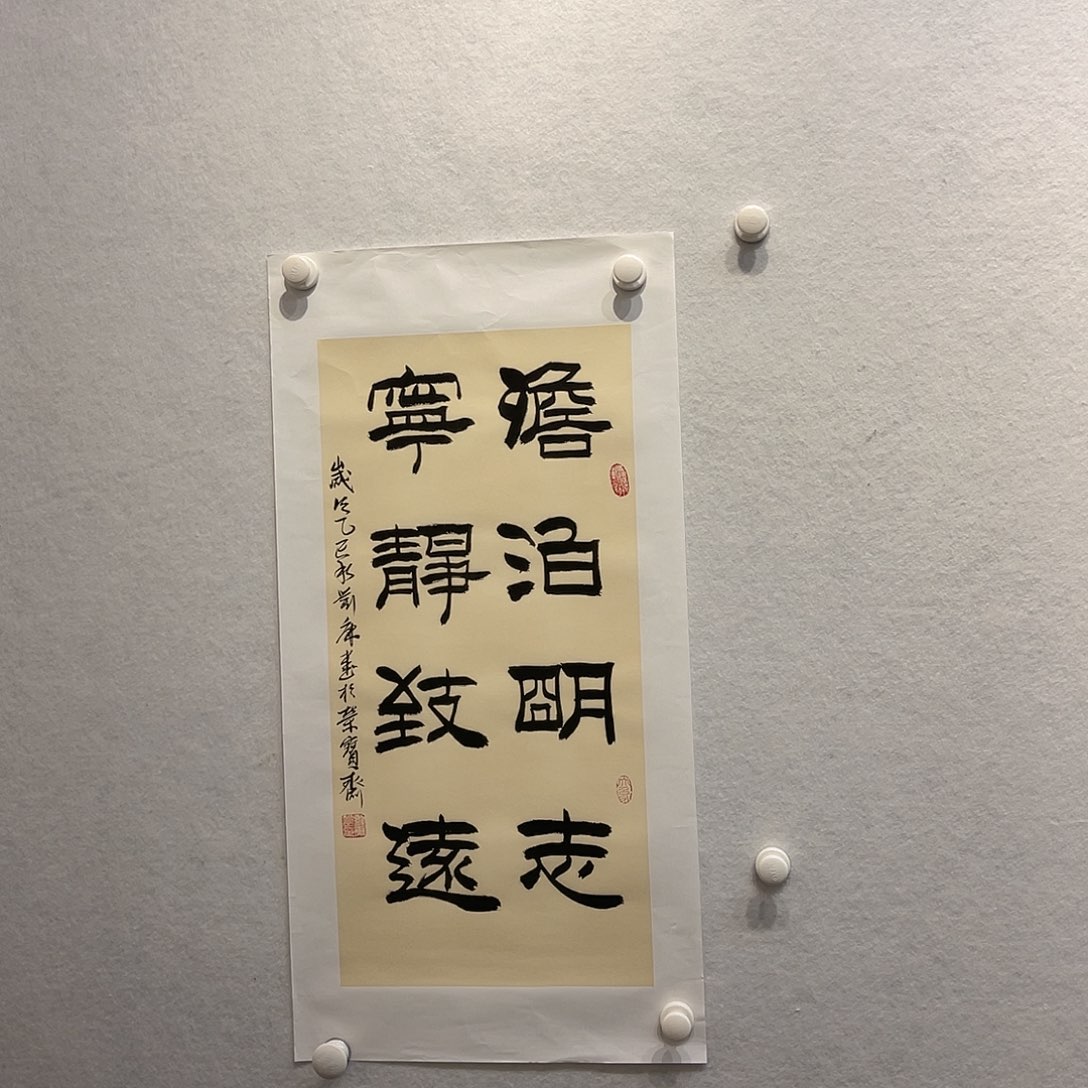 澹泊明志
寧靜致遠
歲次乙巳秋劉康書於榮寶齋